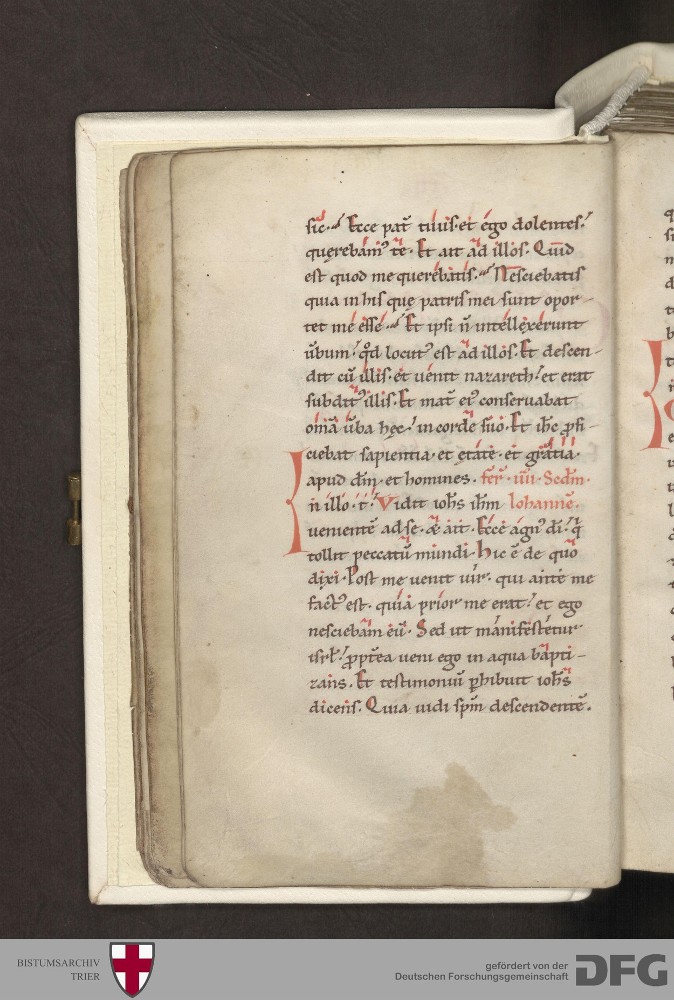 sic. Ecce pat̄ tuus. et ego dolentes.
querebam᷒ te. Et ait ad illos. Quid
est quod me querebatis. Nesciebatis
quia in his que patris mei sunt opor-
tet me esse. Et ipsi n̄ intellexerunt
ūbum. qd locut᷒ est ad illos. Et descen-
dit cū illis. et uenit nazareth. et erat
subdit᷒ illis. Et mat̄ ei᷒ conseruabat
om̄ia ūba hęc. in corde suo. Et ihc̄ ꝓfi-
ciebat sapientia. et ętate. et gratia.
apud dm̄. et homines. fer̄. iiii. Scdm̄.
n̄ illo. t̄. Vidit ioħs ihm̄ Iohannē.
uenientē ad se. & ait. Ecce agn᷒ di̅. q̄
tollit peccatū mundi. Hic ē de quo
dixi. Post me uenit uir. qui ante me
fact᷒ est. quia prior me erat. et ego
nesciebam eū. Sed ut manifestetur
isrł. ꝓpt̄ea ueni ego in aqua bapti-
zans. Et testimoniū ꝑhibuit ioħs
dicens. Quia uidi spm̄ descendentē.
BISTUMSARCHIV
TRIER
gefördert von der
Deutschen Forschungsgemeinschaft
DFG